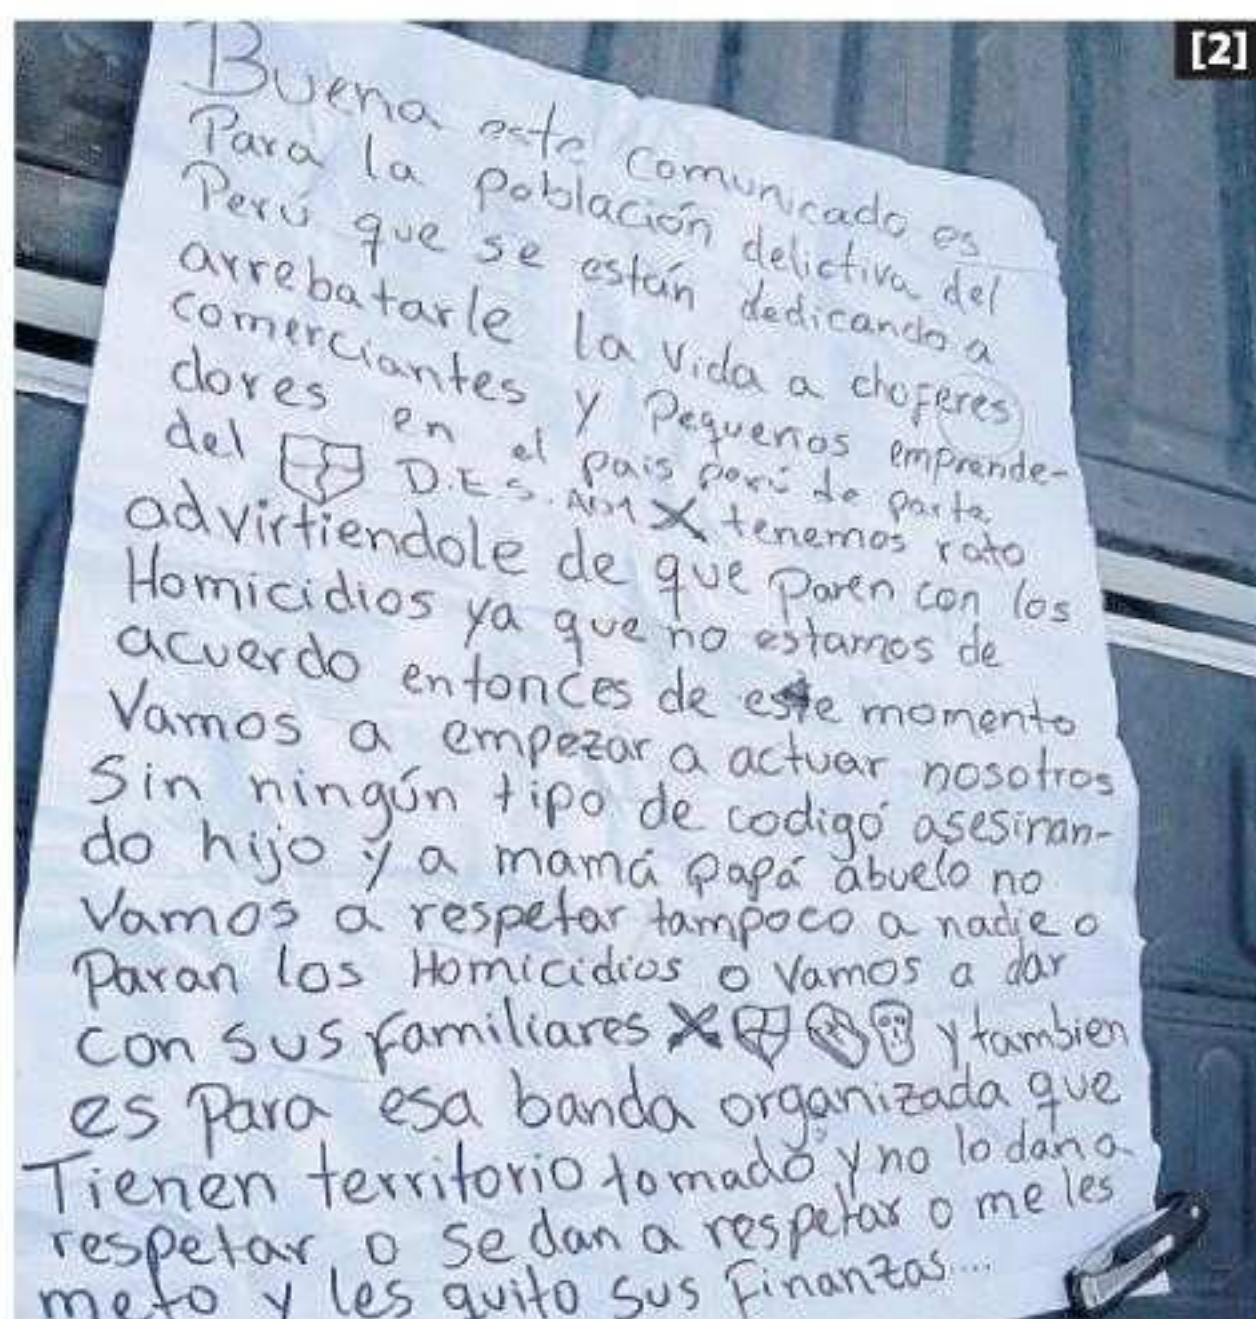 [2]
Buena este comunicado es
Para la población delictiva del
Perú que se están dedicando a
arrebatarle la vida a choferes
comerciantes y pequeños emprende-
dores en el pais perú de parte
del D.E.S. X tenemos rato
advirtiendole de que paren con los
Homicidios ya que no estamos de
acuerdo entonces de este momento
Vamos a empezar a actuar nosotros
Sin ningún tipo de codigo asesinan-
do hijo y a mamá papá abuelo no
Vamos a respetar tampoco a nadie o
Paran los Homicidios o vamos a dar
con sus familiares X y tambien
es Para esa banda organizada que
Tienen territorio tomado y no lo dan a
respetar o se dan a respetar o me les
meto y les quito sus Finanzas...